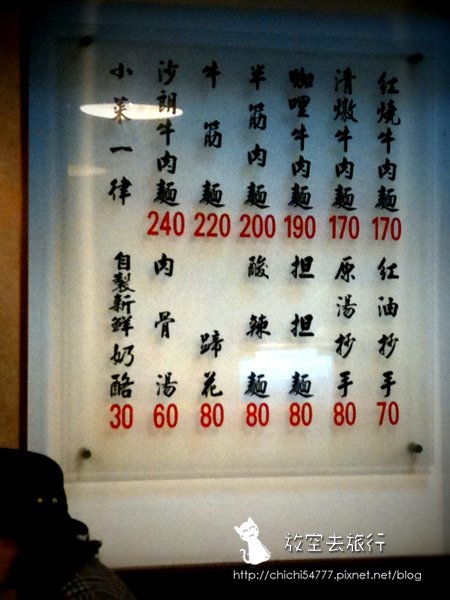 紅燒牛肉麵 170
清燉牛肉麵 170
咖哩牛肉麵 190
半筋肉麵 200
牛筋麵 220
沙朗牛肉麵 240
小菜一律
紅油抄手 70
原湯抄手 80
担担麵 80
酸辣麵 80
蹄花 80
肉骨湯 60
自製新鮮奶酪 30
放空去旅行
http://chichi54777.pixnet.net/blog